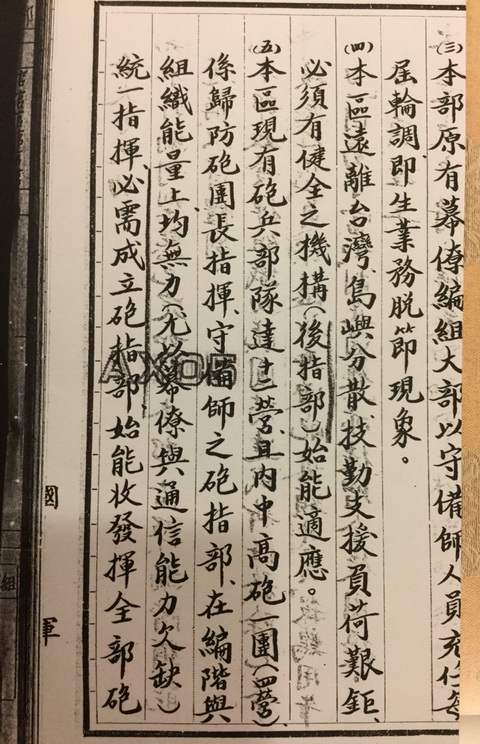 (三)本部原有幕僚編組大部以守備師人員充任每
屆輪調即生業務脫節現象。
(四)本區遠離台灣、島嶼分散、技勤支援負荷艱鉅、
必須有健全之機構(後指部)始能適應。
(五)本區現有砲兵部隊達十二營、且內中高砲一團(四營)
係歸防砲團長指揮、守備師之砲指部、在編階與
組織能量上均無力(尤以幕僚與通信能力欠缺)
統一指揮、必需成立砲指部始能收發揮全部砲
國
軍
組